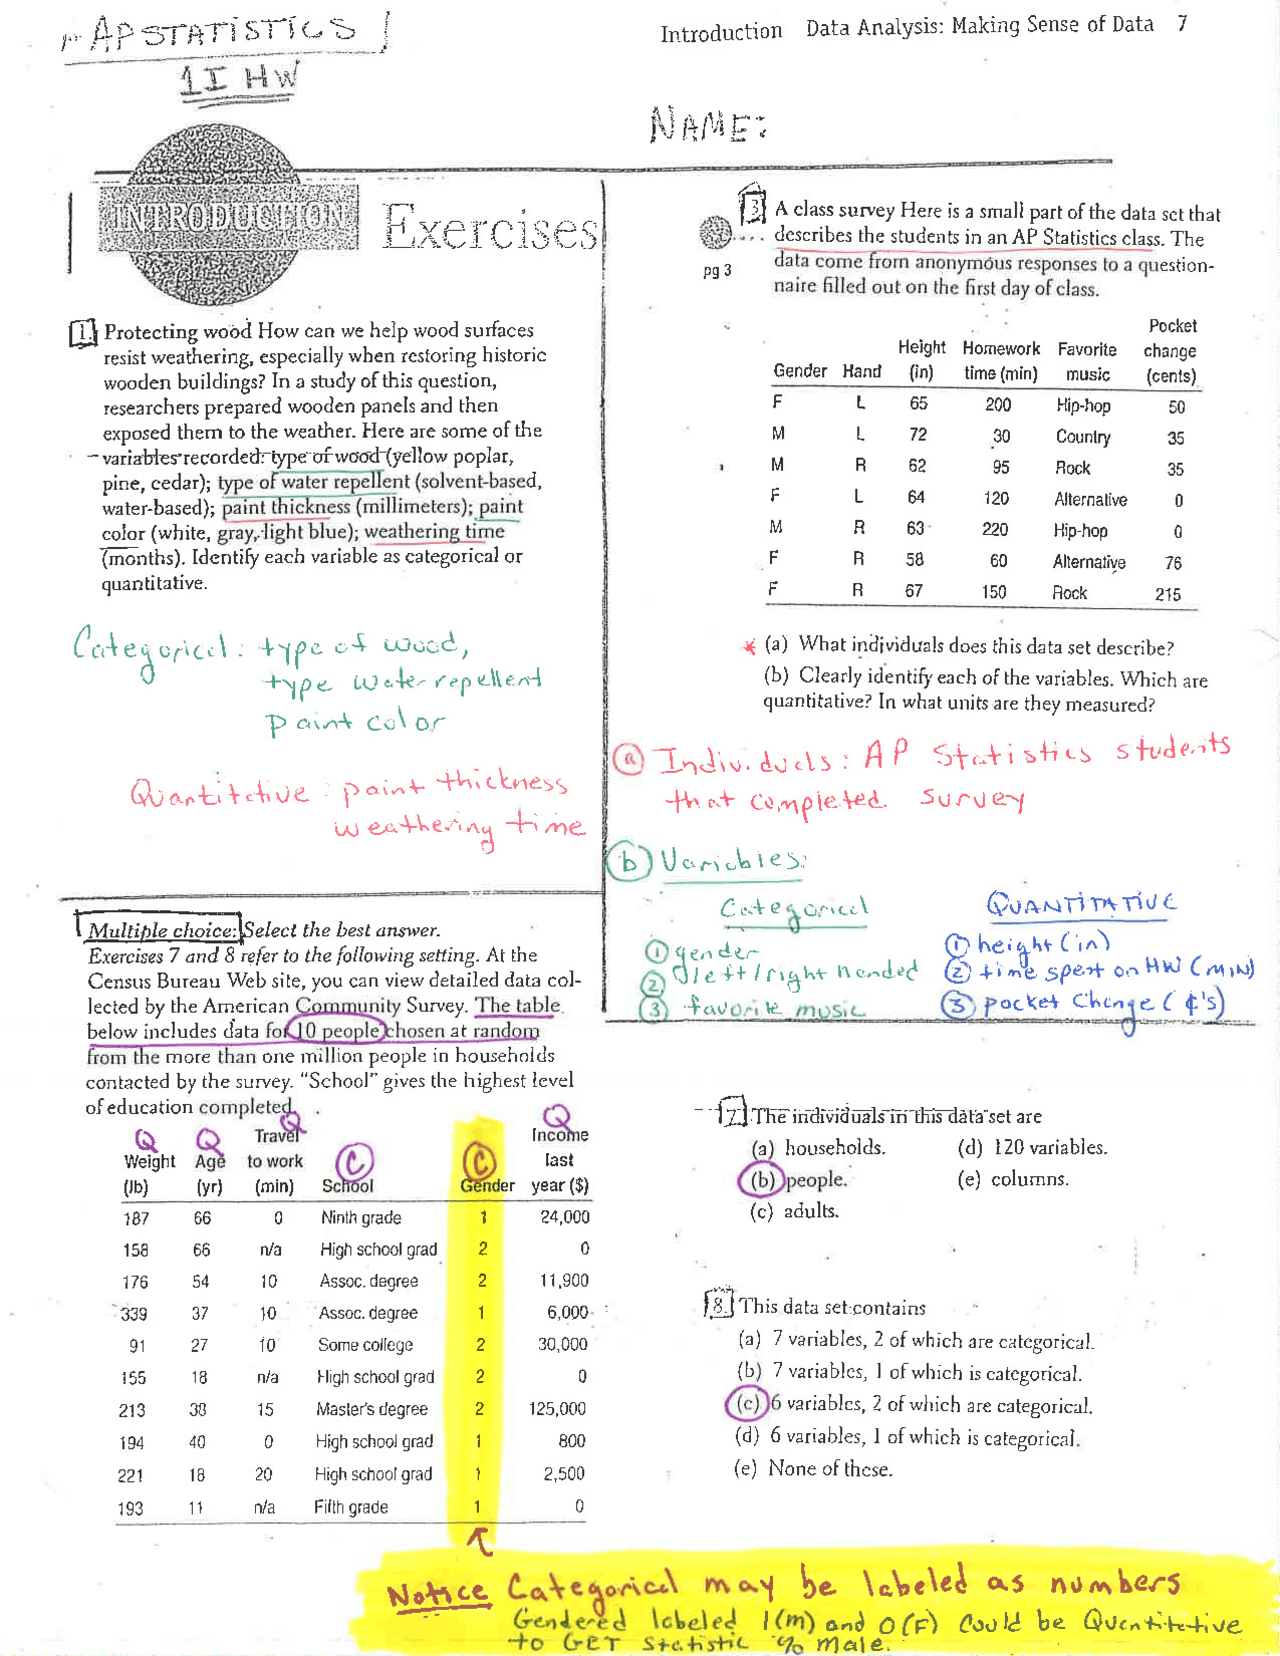 AP STATISTICS
1I HW
Introduction Data Analysis: Making Sense of Data 7
NAME:
INTRODUCTION Exercises
1. Protecting wood How can we help wood surfaces
resist weathering, especially when restoring historic
wooden buildings? In a study of this question,
researchers prepared wooden panels and then
exposed them to the weather. Here are some of the
variables recorded: type of wood (yellow poplar,
pine, cedar); type of water repellent (solvent-based,
water-based); paint thickness (millimeters); paint
color (white, gray, light blue); weathering time
(months). Identify each variable as categorical or
quantitative.
Categorical: type of wood,
type water repellent
paint color
Quantitative: paint thickness
weathering time
3. A class survey Here is a small part of the data set that
describes the students in an AP Statistics class. The
pg 3
data come from anonymous responses to a question-
naire filled out on the first day of class.
Pocket
Height Homework Favorite change
Gender Hand (in) time (min) music (cents)
F L 65 200 Hip-hop 50
M L 72 30 Country 35
M R 62 95 Rock 35
F L 64 120 Alternative 0
M R 63 220 Hip-hop 0
F R 58 60 Alternative 76
F R 67 150 Rock 215
* (a) What individuals does this data set describe?
(b) Clearly identify each of the variables. Which are
quantitative? In what units are they measured?
a Individuals: AP Statistics students
that completed survey
b Variables:
Categorical
① gender
② left/right handed
③ favorite music
QUANTITATIVE
① height (in)
② time spent on HW (MIN)
③ pocket change (¢'s)
Multiple choice: Select the best answer.
Exercises 7 and 8 refer to the following setting. At the
Census Bureau Web site, you can view detailed data col-
lected by the American Community Survey. The table
below includes data for 10 people chosen at random
from the more than one million people in households
contacted by the survey. "School" gives the highest level
of education completed.
Q Q Q C C Q
Travel Income
Weight Age to work last
(lb) (yr) (min) School Gender year ($)
187 66 0 Ninth grade 1 24,000
158 66 n/a High school grad 2 0
176 54 10 Assoc. degree 2 11,900
339 37 10 Assoc. degree 1 6,000
91 27 10 Some college 2 30,000
155 18 n/a High school grad 2 0
213 38 15 Master's degree 2 125,000
194 40 0 High school grad 1 800
221 18 20 High school grad 1 2,500
193 11 n/a Fifth grade 1 0
7. The individuals in this data set are
(a) households. (d) 120 variables.
(b) people. (e) columns.
(c) adults.
8. This data set contains
(a) 7 variables, 2 of which are categorical.
(b) 7 variables, 1 of which is categorical.
(c) 6 variables, 2 of which are categorical.
(d) 6 variables, 1 of which is categorical.
(e) None of these.
Notice Categorical may be labeled as numbers
Gendered labeled 1(m) and 0(F) could be Quantitative
to GET statistic % male.